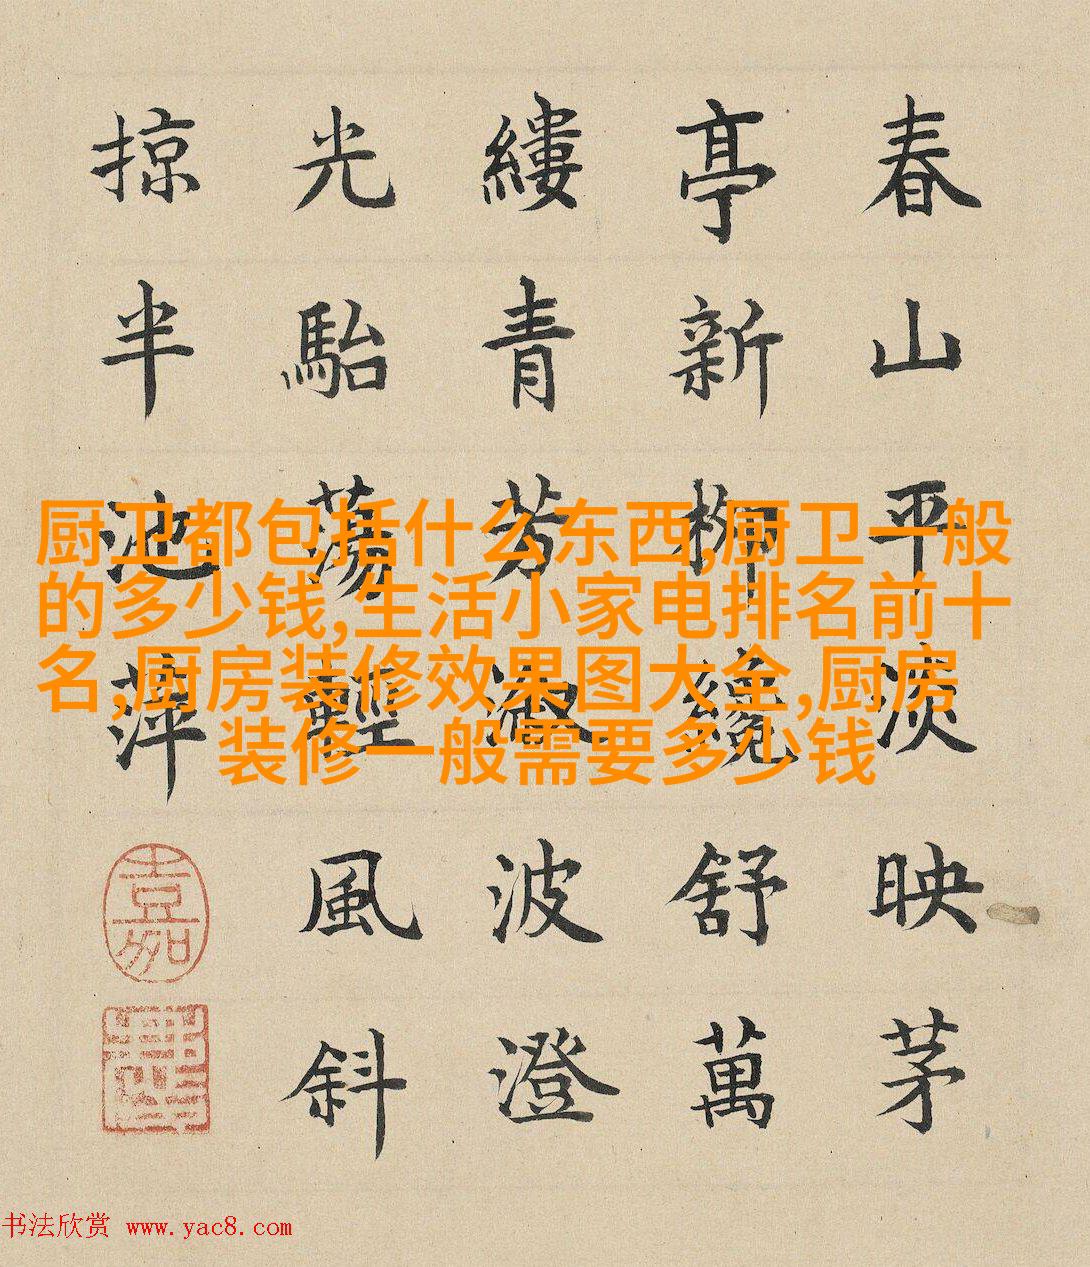 春山平淡映茅
亭新柳纔舒萬
縷青芳淑波澄
光駘蕩輕風斜
掠半池萍
嘉
厨卫都包括什么东西,厨卫一般
的多少钱,生活小家电排名前十
名,厨房装修效果图大全,厨房
装修一般需要多少钱
书法欣赏 www.yac8.com